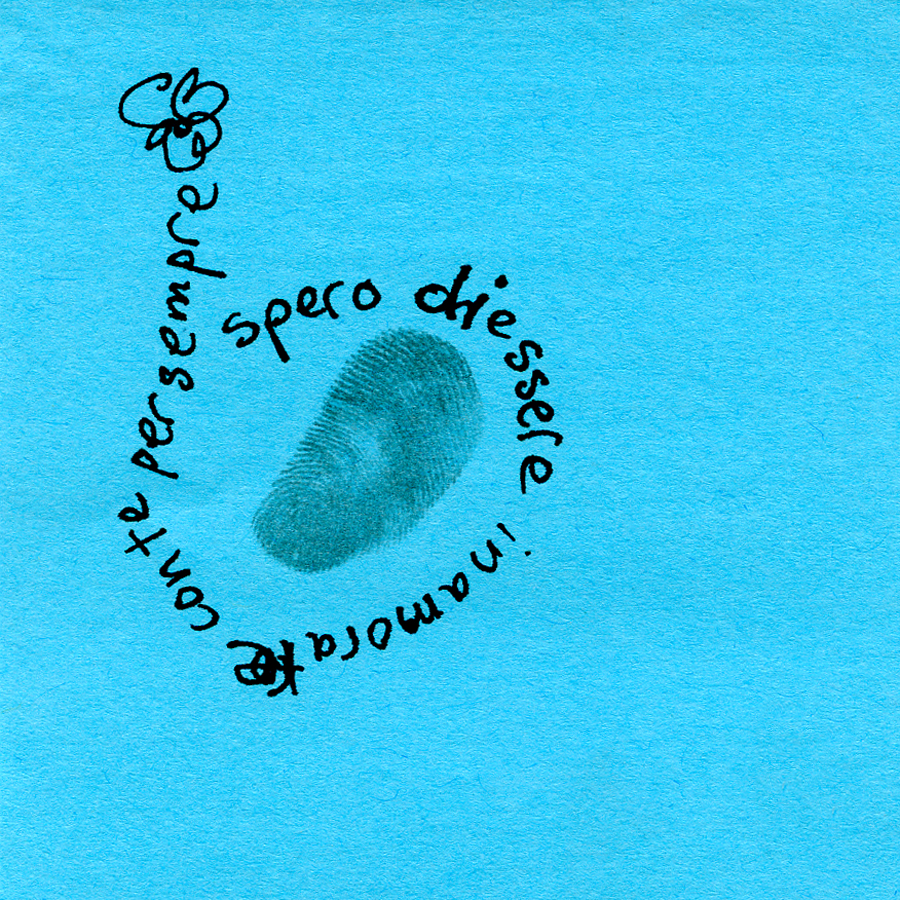 spero di essere inamorate con te per sempre